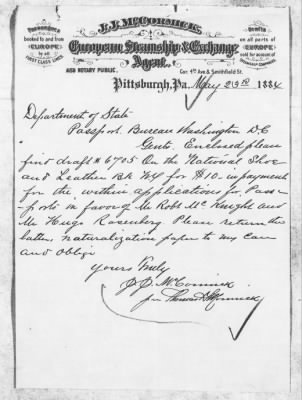 J.J. McCORMICK,
European Steamship & Exchange
Agent,
AND NOTARY PUBLIC,
Cor. 4th Ave & Smithfield St.
PASSENGERS
booked to and from
EUROPE
by all
FIRST CLASS LINES
Drafts
on all parts of
EUROPE
sold for account of
Pittsburgh, Pa. May 23rd 1884
Department of State
Passport Bureau Washington D.C
Gents. Enclosed please
find draft # 6705 On the National Shoe
and Leather Bk NY for $10- in payment
for the within applications for Pass-
ports in favor of Mr Robt McKnight and
Mr Hugo Rosenberg Please return the
latters naturalization paper to my care
and oblige
Yours Truly
J.J. McCormick
per Thomas McCormick